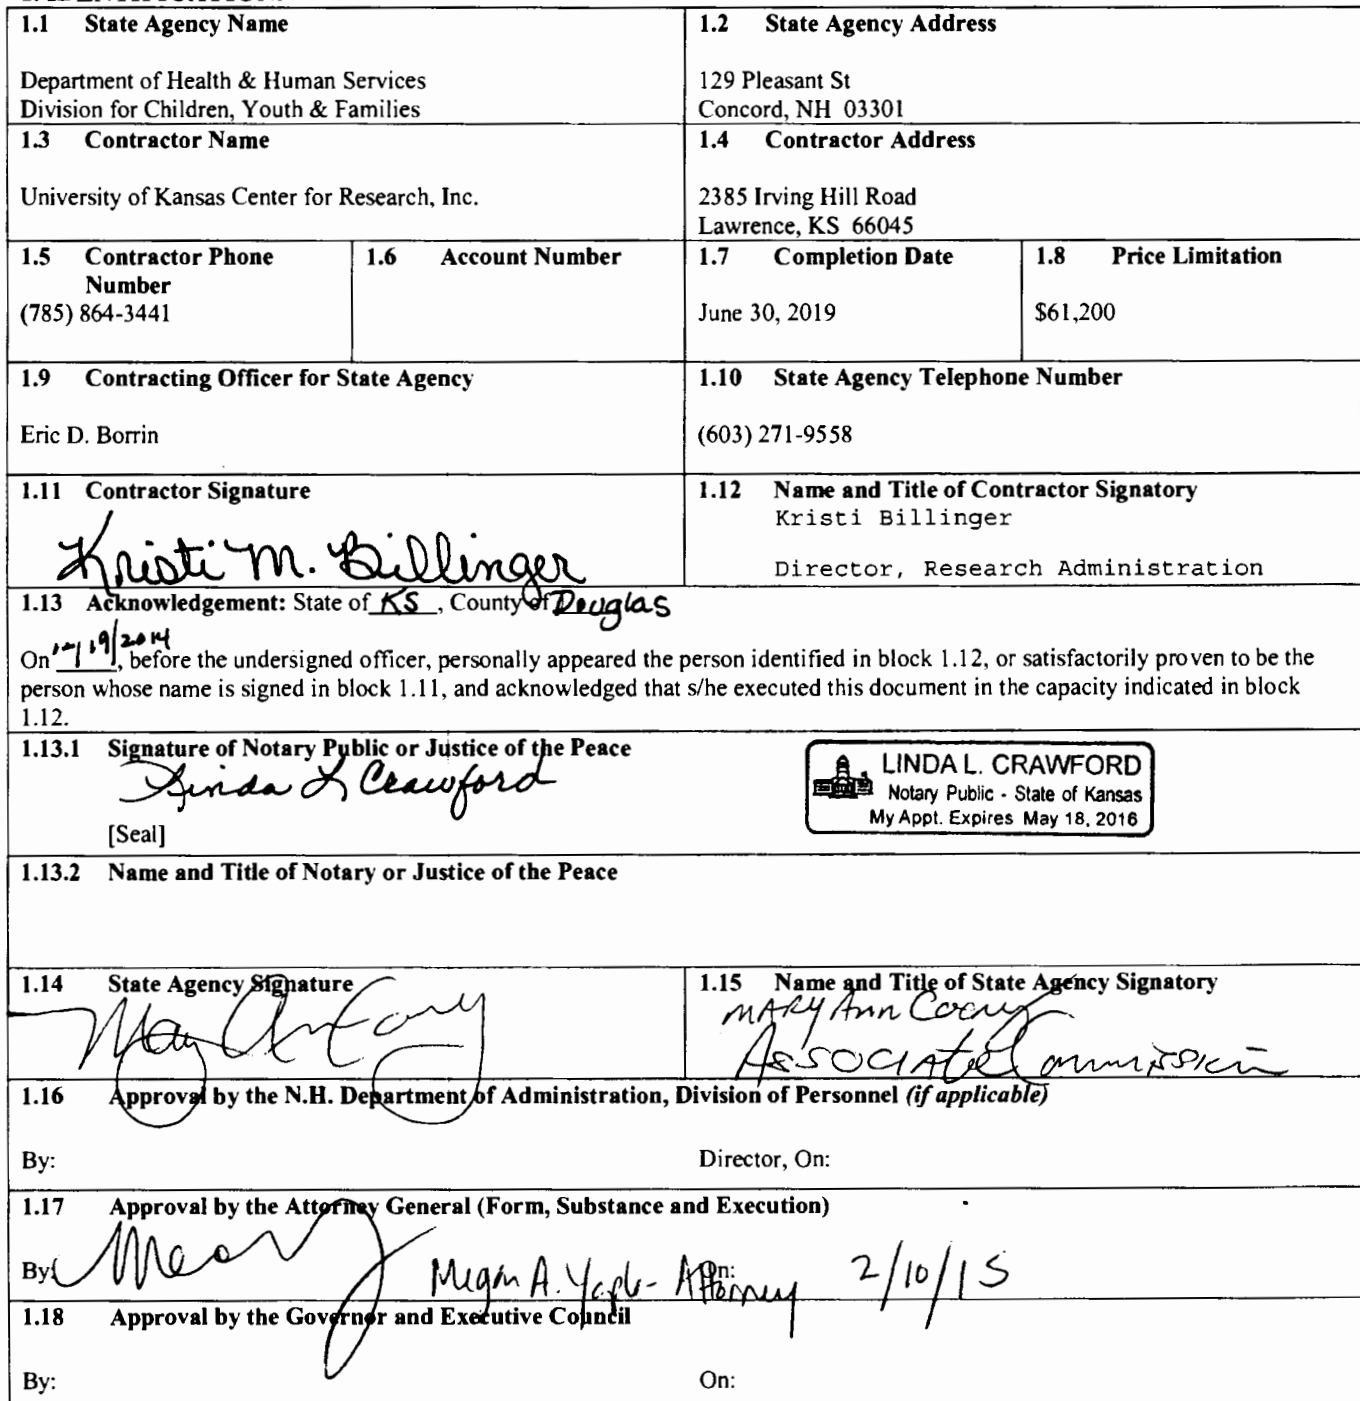 1.1 State Agency Name
Department of Health & Human Services
Division for Children, Youth & Families
1.2 State Agency Address
129 Pleasant St
Concord, NH 03301
1.3 Contractor Name
University of Kansas Center for Research, Inc.
1.4 Contractor Address
2385 Irving Hill Road
Lawrence, KS 66045
1.5 Contractor Phone
Number
(785) 864-3441
1.6 Account Number
1.7 Completion Date
June 30, 2019
1.8 Price Limitation
$61,200
1.9 Contracting Officer for State Agency
Eric D. Borrin
1.10 State Agency Telephone Number
(603) 271-9558
1.11 Contractor Signature
Kristi M. Billinger
1.12 Name and Title of Contractor Signatory
Kristi Billinger
Director, Research Administration
1.13 Acknowledgement: State of KS, County of Douglas
On 12/19/2014, before the undersigned officer, personally appeared the person identified in block 1.12, or satisfactorily proven to be the
person whose name is signed in block 1.11, and acknowledged that s/he executed this document in the capacity indicated in block
1.12.
1.13.1 Signature of Notary Public or Justice of the Peace
Linda L Crawford
[Seal]
LINDA L. CRAWFORD
Notary Public - State of Kansas
My Appt. Expires May 18, 2016
1.13.2 Name and Title of Notary or Justice of the Peace
1.14 State Agency Signature
1.15 Name and Title of State Agency Signatory
Mary Ann Cooney
Associate Commissioner
1.16 Approval by the N.H. Department of Administration, Division of Personnel (if applicable)
By:
Director, On:
1.17 Approval by the Attorney General (Form, Substance and Execution)
By: Megan A. - Attorney On: 2/10/15
1.18 Approval by the Governor and Executive Council
By:
On: